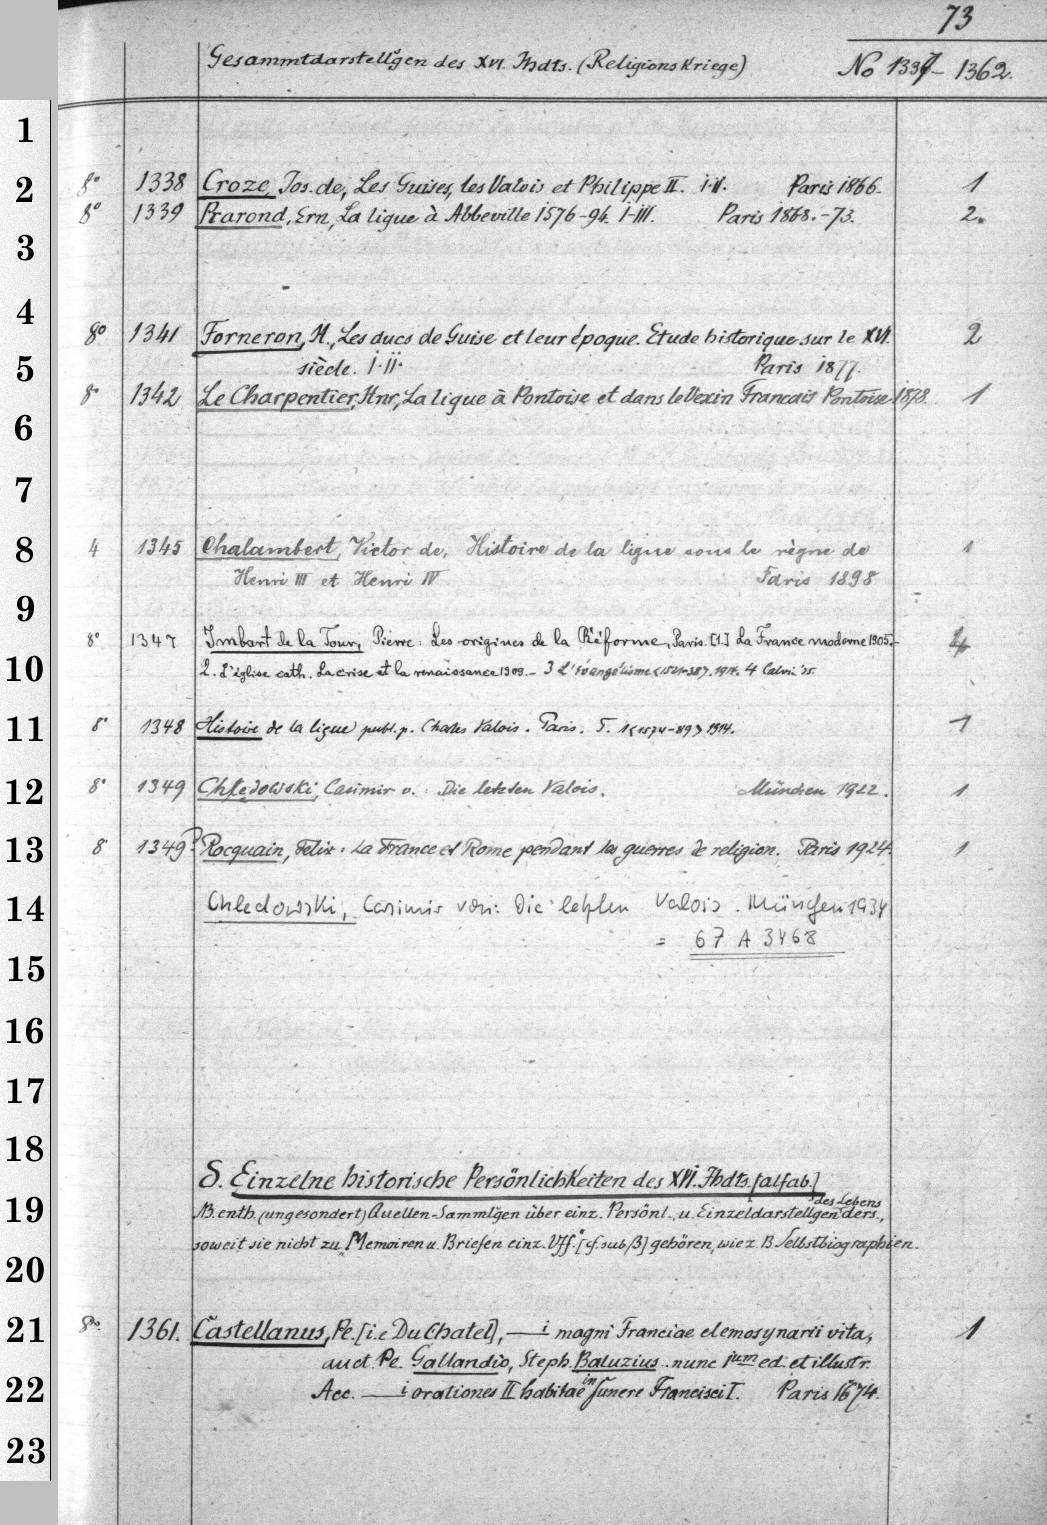 73
Gesammtdarstellgen des XVI. Jhdts. (Religionskriege) No 1337-1362.
1
2 8° 1338 Croze, Jos. de, Les Guises, les Valois et Philippe II. I.II. Paris 1866. 1
8° 1339 Prarond, Ern., La ligue à Abbeville 1576-94. I-III. Paris 1868.-73. 2.
3
4
8° 1341 Forneron, H., Les ducs de Guise et leur époque. Etude historique sur le XVI. 2
5 siècle. I.II. Paris 1877.
8° 1342 Le Charpentier, Hnr., La ligue à Pontoise et dans le Vexin Francais Pontoise 1878. 1
6
7
8 4 1345 Chalambert, Victor de, Histoire de la ligue sous le règne de 1
Henri III et Henri IV Paris 1898
9
8° 1347 Imbart de la Tour, Pierre: Les origines de la Réforme, Paris. [1.] La France moderne 1905.- 4
10 2. L'église cath. La crise et la renaissance 1909.- 3 L'évangélisme <1521-38>. 1914. 4 Calvin 35.
11 8° 1348 Histoire de la ligue publ. p. Charles Valois. Paris. T. 1 <1574-89> 1914. 1
12 8° 1349 Chłedowski, Casimir v.: Die letzten Valois. München 1922. 1
13 8° 1349 Rocquain, Felix: La France et Rome pendant les guerres de religion. Paris 1924. 1
14 Chledowski, Casimir von: Die letzten Valois. München 1934
= 67 A 3468
15
16
17
18
δ. Einzelne historische Persönlichkeiten des XVI. Jhdts. [alfab.]
19 NB. enth. (ungesondert) Quellen-Sammlgen über einz. Persönl., u. Einzeldarstellgen des Lebens ders.,
soweit sie nicht zu Memoiren u. Briefen einz. Vff. [cf. sub β] gehören, wie z. B. Selbstbiographien.
20
21 8° 1361. Castellanus, Pe. [i.e Du Chatel], —i magni Franciae elemosynarii vita, 1
auct. Pe. Gallandio, Steph. Baluzius nunc jum ed. et illustr.
22 Acc. —i orationes II habitae in funere Francisci I. Paris 1674.
23